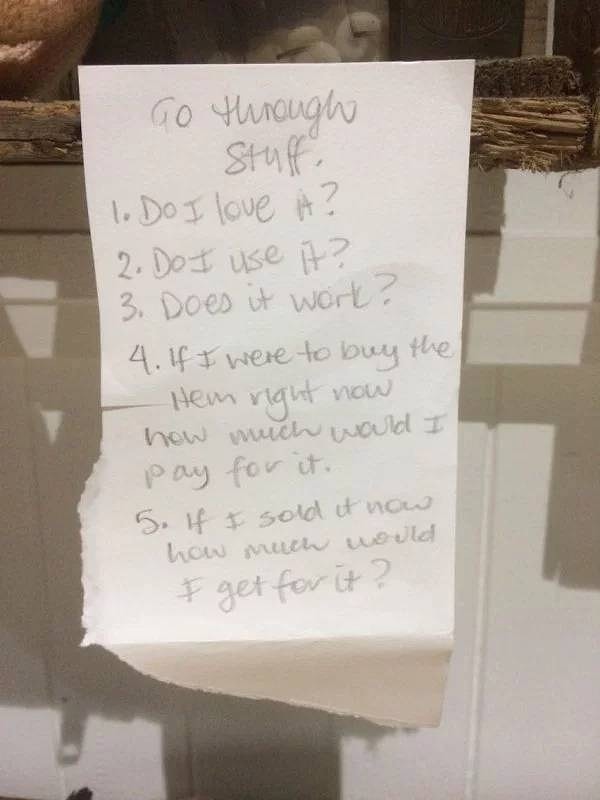 Go through
Stuff.
1. Do I love it?
2. Do I use it?
3. Does it work?
4. If I were to buy the
item right now
how much would I
pay for it.
5. If I sold it now
how much would
I get for it?